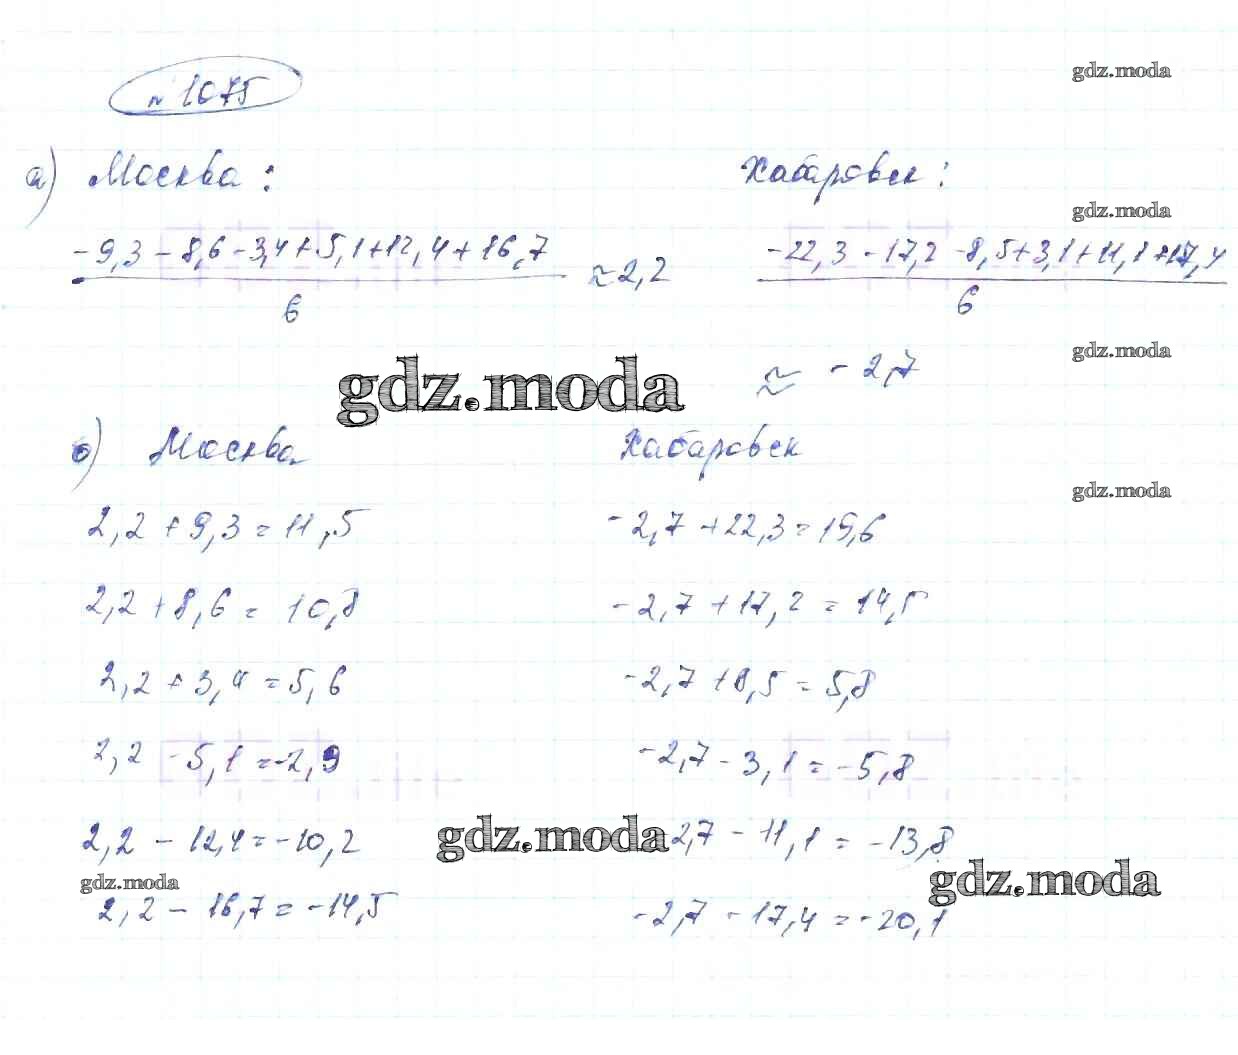 № 1075
gdz.moda
а) Москва : Хабаровск :
gdz.moda
-9,3 - 8,6 - 3,4 + 5,1 + 12,4 + 16,7 ≈ 2,2 -22,3 - 17,2 - 8,5 + 3,1 + 11,1 + 17,4
6 6
gdz.moda
gdz.moda ≈ - 2,7
б) Москва Хабаровск
gdz.moda
2,2 + 9,3 = 11,5 -2,7 + 22,3 = 19,6
2,2 + 8,6 = 10,8 -2,7 + 17,2 = 14,5
2,2 + 3,4 = 5,6 -2,7 + 8,5 = 5,8
2,2 - 5,1 = -2,9 -2,7 - 3,1 = -5,8
2,2 - 12,4 = -10,2 gdz.moda 2,7 - 11,1 = -13,8
gdz.moda gdz.moda
2,2 - 16,7 = -14,5 -2,7 - 17,4 = -20,1